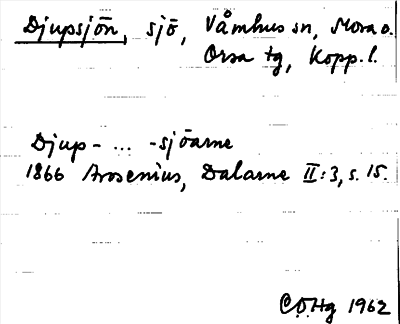 Djupsjön, sjö, Våmhus sn, Mora o.
Orsa tg, Kopp. l.
Djup- ... -sjöarne
1866 Arosenius, Dalarne II:3, s. 15.
C.O.Hg 1962